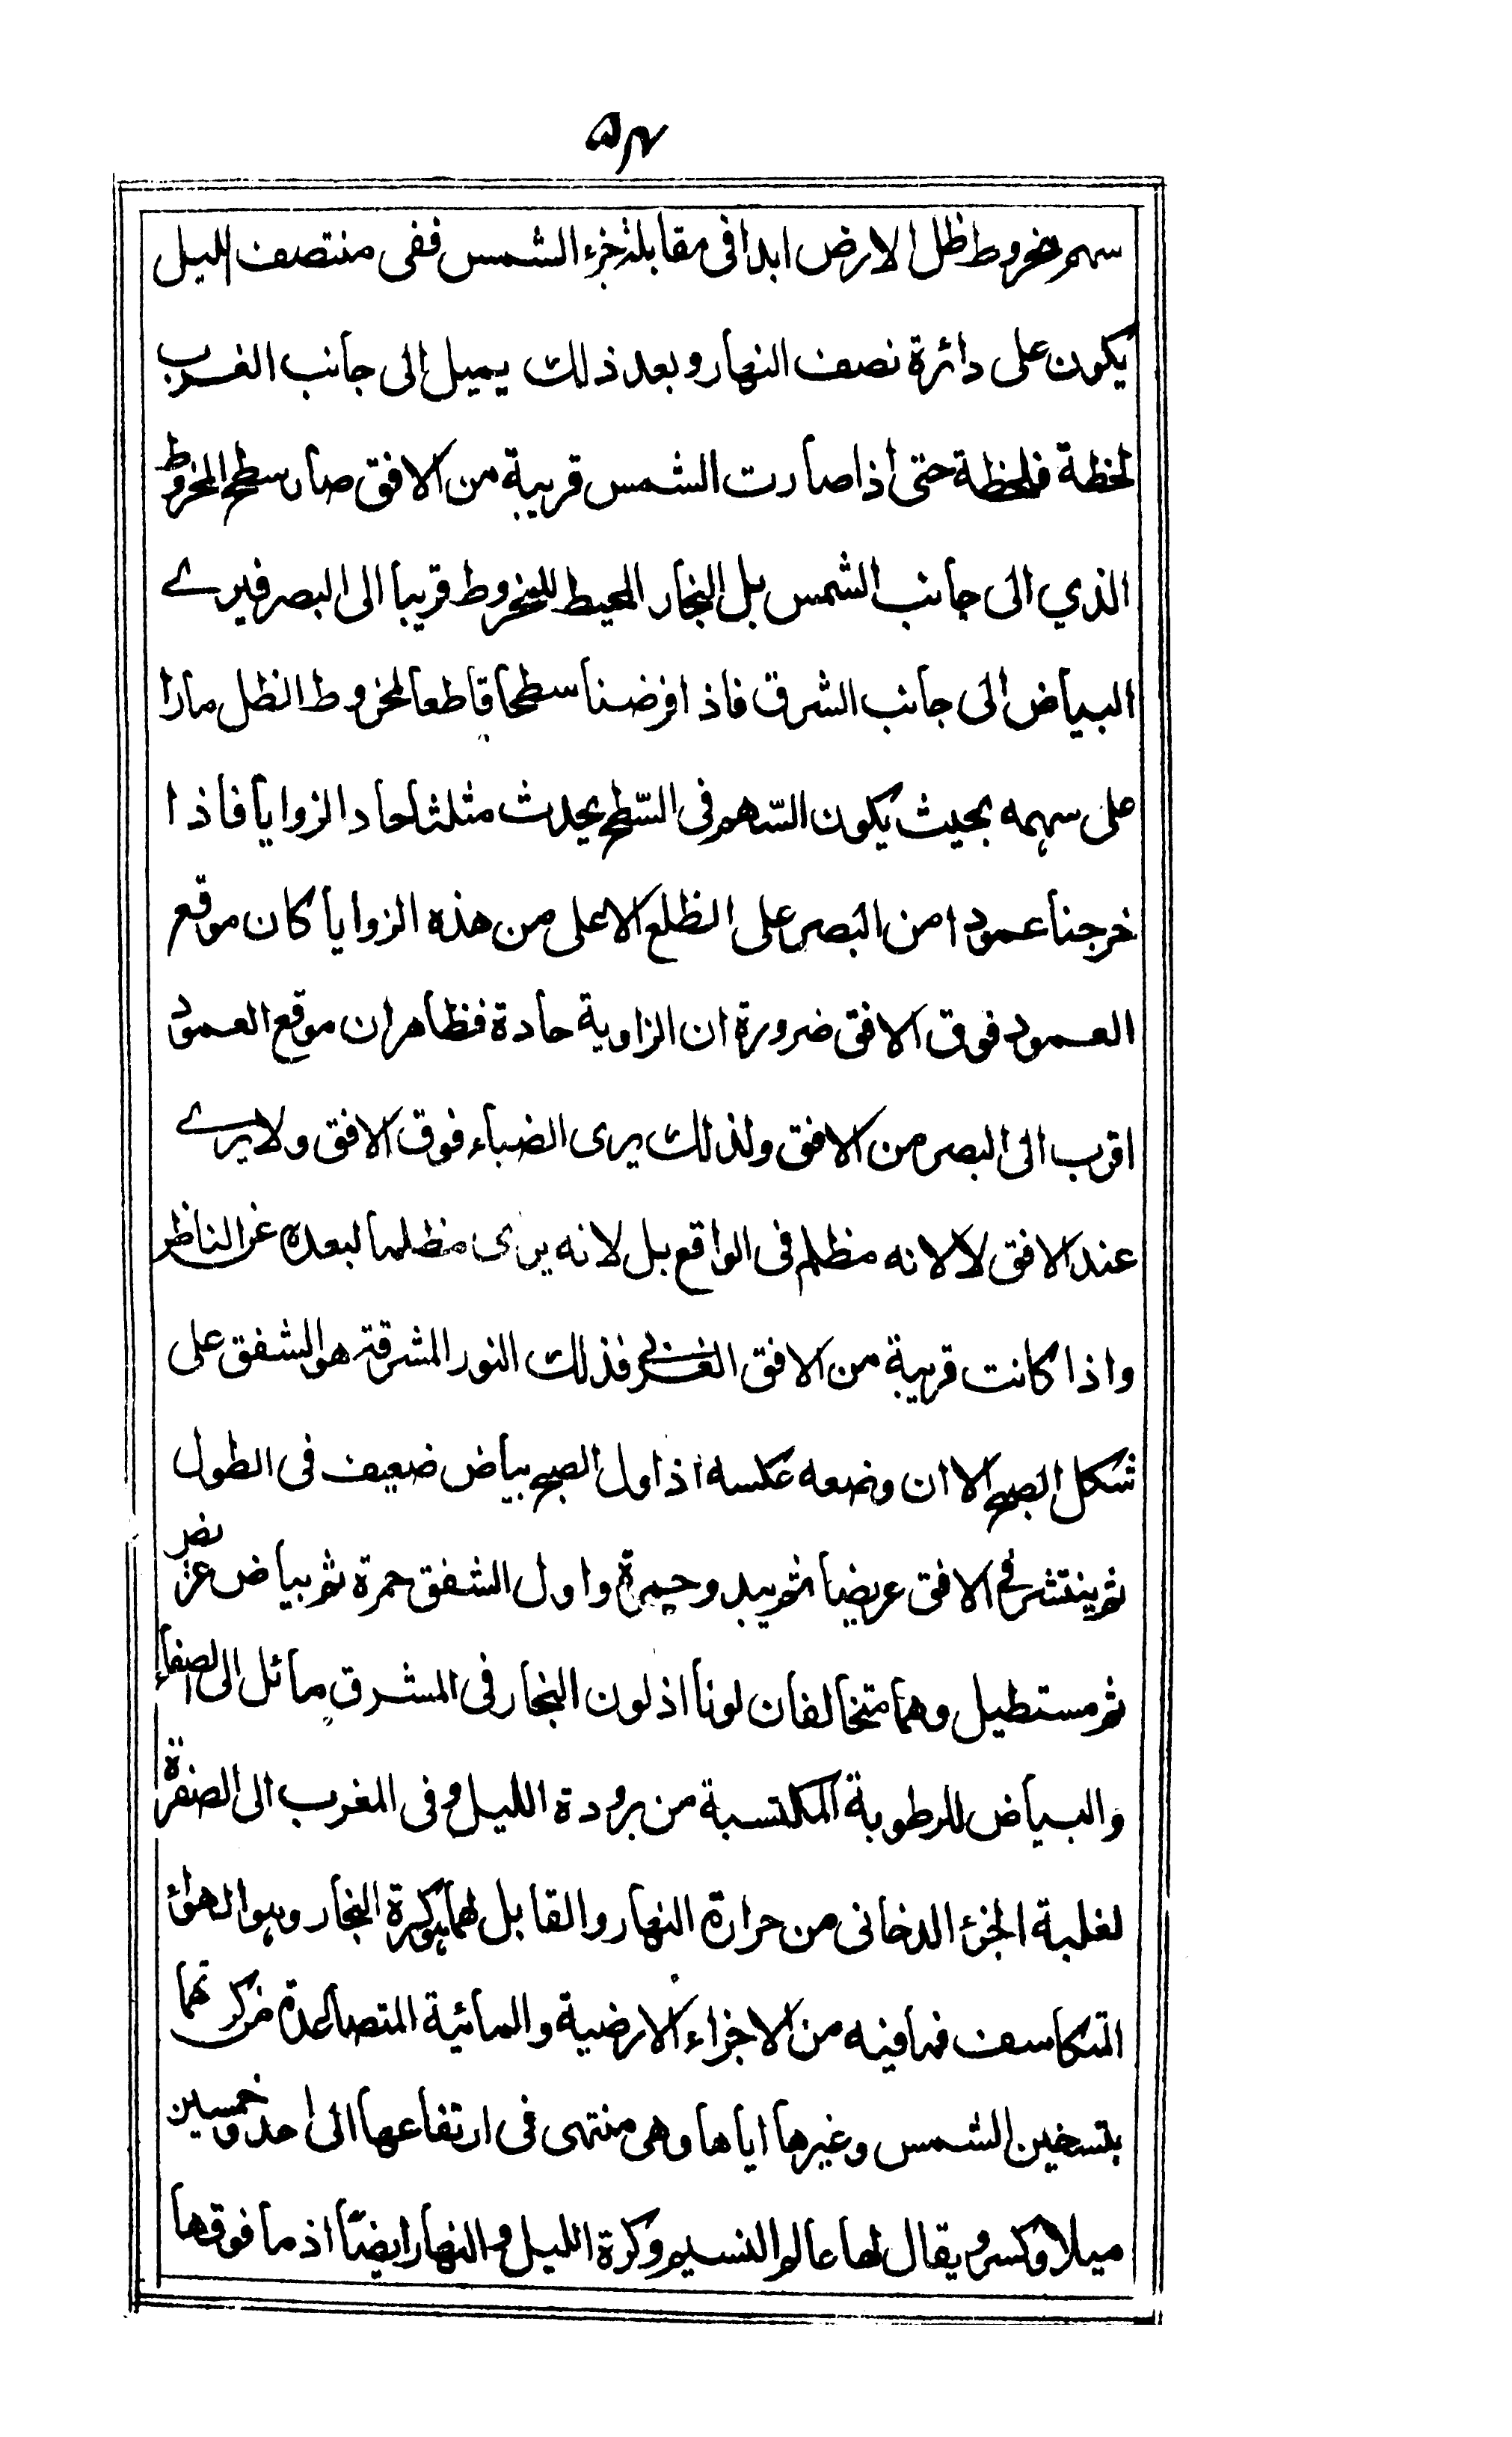 ۵۴
سهم مخروط ظل الارض ابدا فى مقابلة جزء الشمس ففى منتصف الليل
يكون على دائرة نصف النهار وبعد ذلك يميل الى جانب الغرب
لحظة فلحظة حتى اذا صارت الشمس قريبة من الافق صار سطح المخروط
الذي الى جانب الشمس بل البخار المحيط للمخروط قريبا الى البصر فيرے
البياض الى جانب الشرق فاذا فرضنا سطحا قاطعا لمخروط الظل مارا
على سهمه بحيث يكون السّهم فى السّطح يحدث مثلثا حاد الزوايا فاذا
خرجنا عمودا من البصر على الظلع الاعلى من هذه الزوايا كان موقع
العمود فوق الافق ضرورة ان الزاوية حادة فظاهر ان موقع العمود
اقرب الى البصر من الافق ولذلك يرى الضياء فوق الافق ولا يرے
عند الافق لا لانه مظلم فى الواقع بل لانه يرى مظلما لبعده عن الناظر
واذا كانت قريبة من الافق الغربى فذلك النور المشرقة هو الشفق على
شكل الصبح الا ان وضعه عكسه اذ اول الصبح بياض ضعيف فى الطول
ثم ينتشر فى الافق عريضا ثم يبدو حمرة واول الشفق حمرة ثم بياض عريض
ثم مستطيل وهما متخالفان لونا اذ لون البخار فى المشرق مائل الى الصفاء
والبياض للرطوبة المكتسبة من برودة الليل وفى المغرب الى الصفرة
لغلبة الجزء الدخانى من حرارة النهار والقابل لهما هو كرة البخار وهو الهواء
المتكاسف فما فيه من الاجزاء الارضية والمائية المتصاعدة من كرتهما
بتسخين الشمس وغيرها اياها وهى منتهى فى ارتفاعها الى احد وخمسين
ميلا وكسر ويقال لها عالم النسيم وكرة الليل والنهار ايضًا اذ ما فوقها